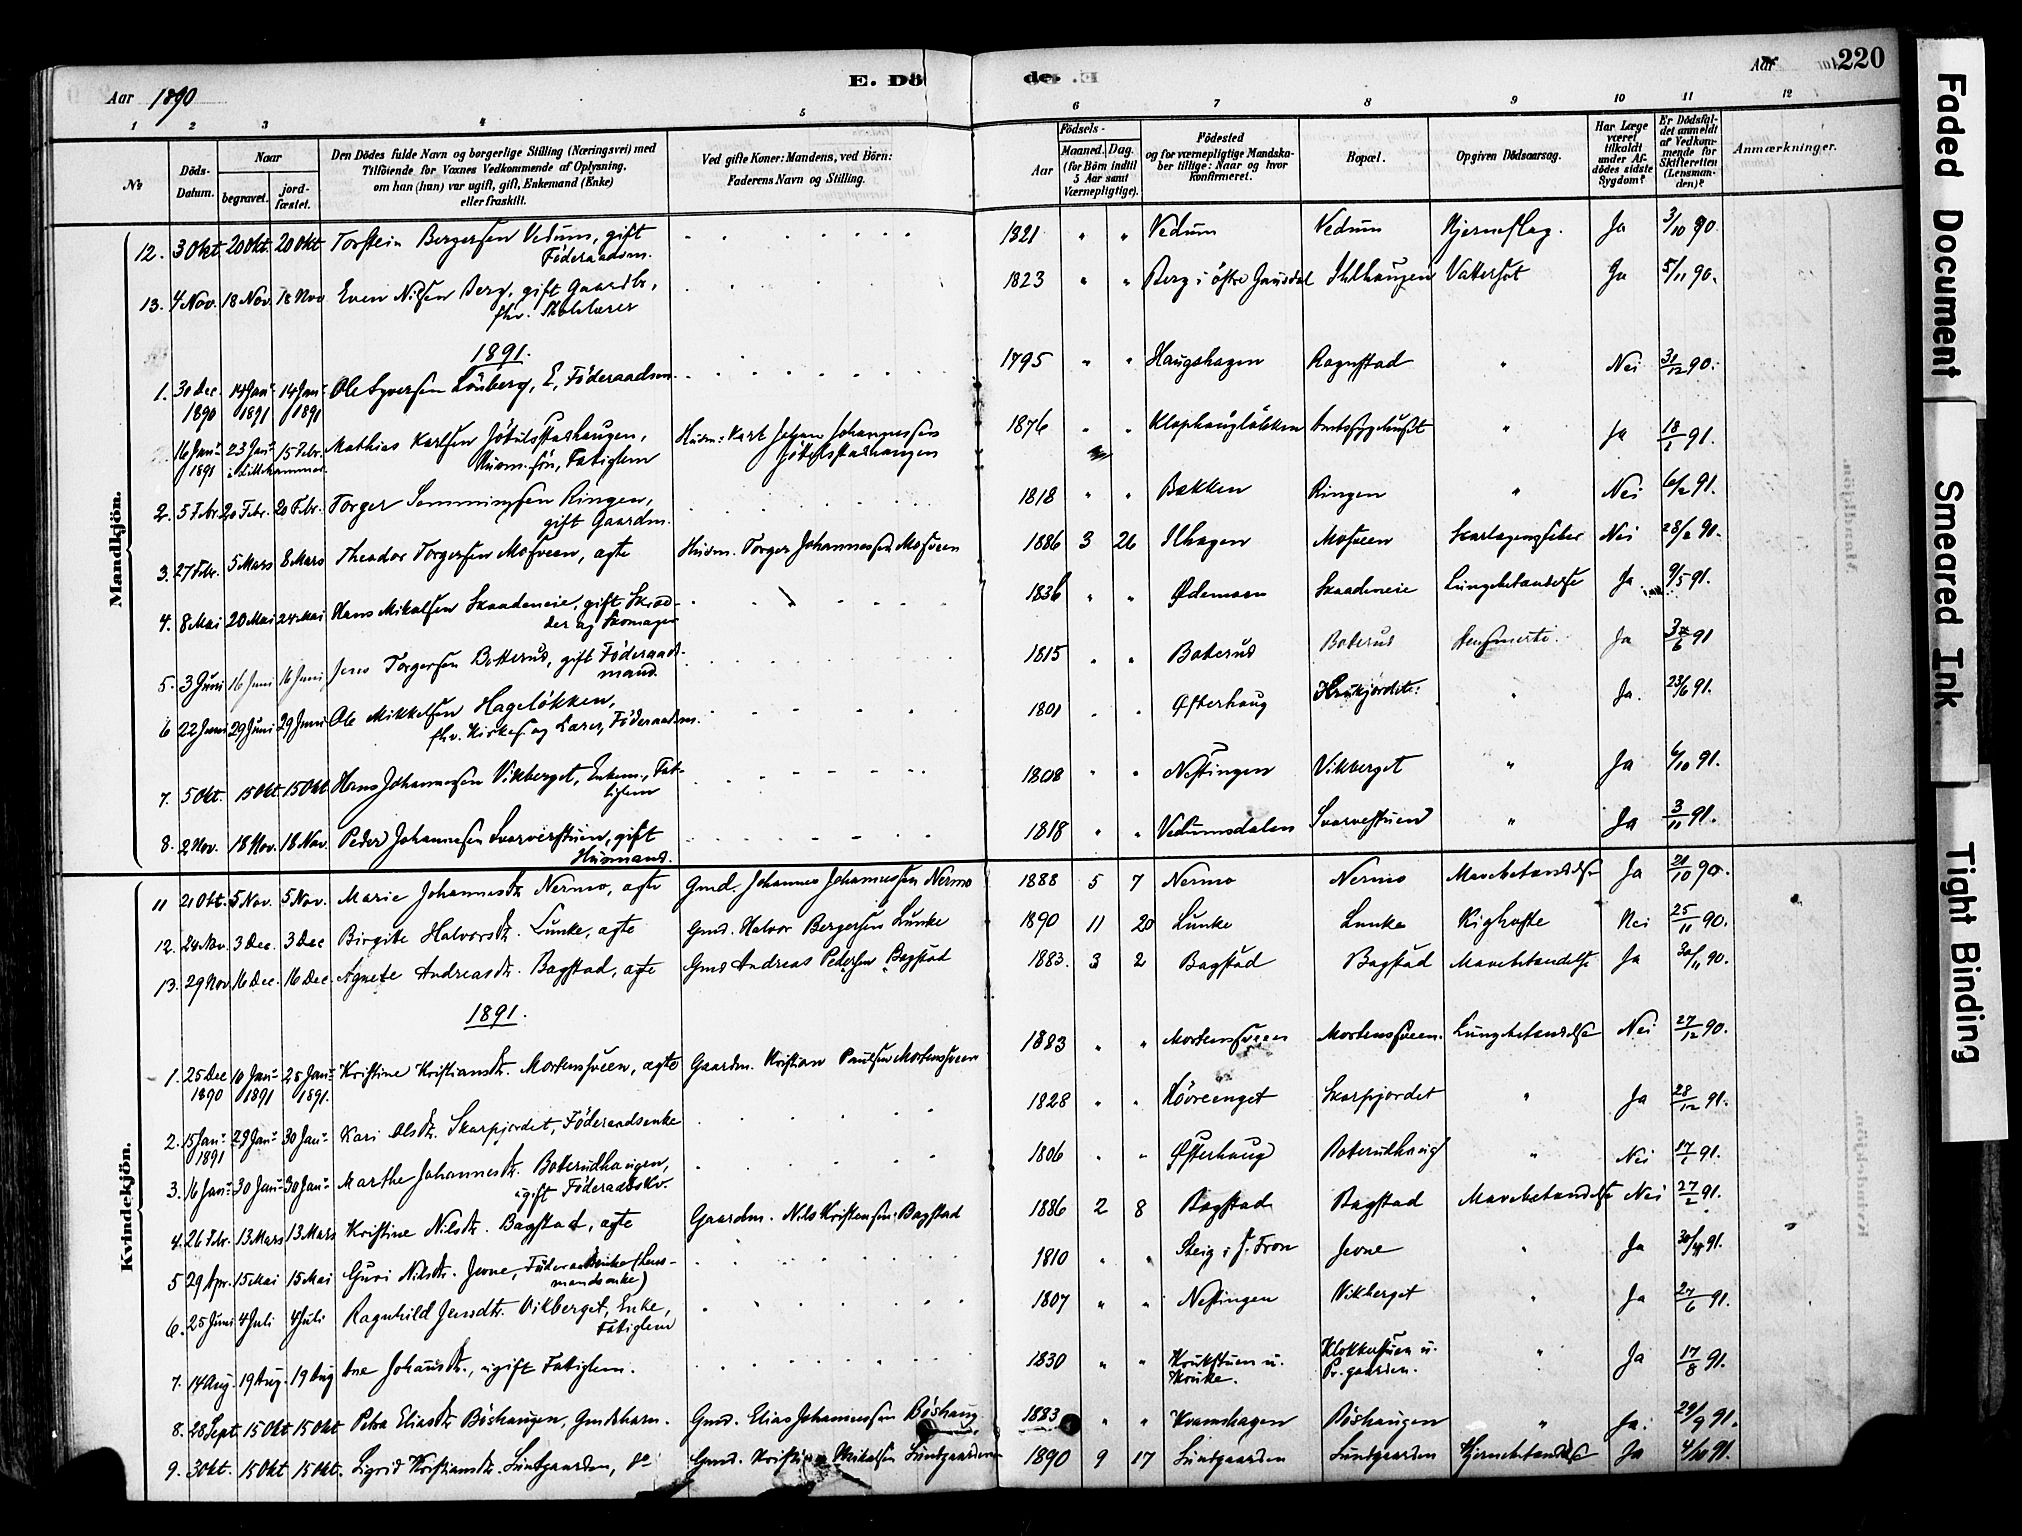 Aar 1890
E. Dö
de. E
Aar
220
1 2 3 4 5 6 7 8 9 10 11 12
№
Döds-Datum.
Naar
begravet.
jord-fæstet.
Den Dödes fulde Navn og borgerlige Stilling (Næringsvei) med
Tilföiende for Voxnes Vedkommende af Oplysning.
om han (hun) var ugift, gift, Enkemand (Enke)
eller fraskilt.
Ved gifte Koner: Mandens, ved Börn:
Faderens Navn og Stilling.
Födsels-
Aar
Maaned. Dag.
(for Börn indtil
5 Aar samt
Værnepligtige).
Födested
og for værnepligtige Mandska-
ber tillige: Naar og hvor
konfirmeret.
Bopæl.
Opgiven Dödsaarsag.
Har Læge
været
tilkaldt
under Af-
dödes sidste
Sygdom?
Er Dödsfal-
det anmeldt
af Vedkom-
mende for
Skifteretten
(Lensman-
den)?
Anmærkninger.
Mandkjön.
12. 3 Okt. 20 Okt. 20 Okt. Torstein Bergersen Vedum, gift 1821 " " Vedum Vedum Hjerneslag. Ja 3/10 90.
Föderaadsm.
13. 4 Nov. 18 Nov. 18 Nov Even Nilsen Berg, gift Gaardbr, 1823 " " Berg i östre Gausdal Ihlhaugen Vattersot Ja 5/11 90.
fhv. Skolelærer
1891.
1. 30 Dec. 14 Jan. 14 Jan. Ole Syversen Lönberg, E, Föderaadsm. 1795 " " Haugshagen Bagstad " Nei 31/12 90.
1890 1891 1891
16 Jan. 23 Jan. 15 Febr. Mathias Karlsen Jötulsstadhaugen, Husm: Karl Johan Johannessen 1876 " " Klophaugløkken Amtssygehuset " Ja 18/1 91.
1891 i Lillehammer Husm. sön, Fatiglem Jötulsstadhaugen
2. 5 Febr. 20 Febr. 20 Febr. Torger Simmingsen Ringen, 1818 " " Bakken Ringen " Nei 6/2 91.
gift Gaardm.
3. 27 Febr. 5 Mars 8 Mars Theodor Torgersen Mosveen, ægte Husm. Torger Johannessen Mosveen 1886 3 26 Ilhagen Mosveen Skarlagensfeber Nei 28/2 91.
4. 8 Mai 20 Mai 24 Mai Hans Mikalsen Skaadeneie, gift Skræd- 1836 " " Ødemoen Skaadeneie Lungebetændelse Ja. 9/5 91.
der og Skomager
5. 3 Juni 16 Juni 16 Juni Jens Torgersen Botterud, gift Föderaads- 1815 " " Boterud Boterud Ja 3/6 91
mand.
6 22 Juni 29 Juni 29 Juni Ole Mikkelsen Hageløkken, 1801 " " Østerhaug " Ja. 23/6 91.
fhv. Kirkes. og Lærer, Föderaadsm.
7. 5 Okt. 15 Okt 15 Okt Hans Johannesen Vikberget, Enkem., Fat- 1808 " " Nestingen Vikberget " Ja 6/10 91.
iglem
8. 2 Nov. 18 Nov. 18 Nov. Peder Johannesen Svarverstuen, gift 1818 " " Vedumsdalen Svarvestuen " Ja 3/11 91.
Husmand.
Kvindekjön.
11 21 Okt. 5 Nov. 5 Nov. Marie Johannesdtr. Nermo, ægte Gmd. Johannes Johannessen Nermo 1888 5 7 Nermo Nermo Mavebetændelse Ja 21/10 90.
12. 24 Nov. 3 Dec. 3 Dec Birgite Halvorsdtr. Lunke, ægte Gmd. Halvor Bergersen Lunke 1890 11 20 Lunke Lunke Kighoste Nei 25/11 90.
13. 29 Nov 16 Dec. 16 Dec. Agnete Andreasdtr. Bagstad, ægte Gmd Andreas Pedersen Bagstad 1883. 3 2 Bagstad Bagstad Mavebetændelse Ja 30/11 90.
1891.
1. 25 Dec 10 Jan. 25 Jan. Kristine Kristiansdtr. Mortenssveen, ægte Gaardm. Kristian Paulsen Mortenssveen 1883 " " Mortenssveen Mortenssveen. Lungebetændelse Nei 27/12 90.
1890 1891 1891.
2. 15 Jan. 29 Jan. 30 Jan. Kari Olsdtr. Skarpjordet, Föderaadsenke 1828 " " Skarpjordet " Ja 28/12 91.
1891
3. 16 Jan. 30 Jan. 30 Jan. Marthe Johannesdtr. Boterudhaugen, 1806 " " Østerhaug Boterudhaug " Nei 17/1 91.
ugift Föderaadskv.
4. 26 Febr. 13 Mars 13 Mars Kristine Nilsdtr. Bagstad, ægte Gaardm. Nils Kristensen Bagstad 1886 2 8 Bagstad Bagstad Mavebetændelse Nei 27/2 91.
5 29 Apr. 15 Mai 15 Mai Guri Nilsdtr. Jevne, Föderaadsenke (Lens- 1810 " " Steig i S. Fron Jevne " Ja 30/4 91.
mandsenke)
6. 25 Juni 4 Juli 4 Juli Ragnhild Jensdtr. Vikberget, Enke, 1807 " " Nestingen Vikberget " Ja 27/6 91.
Fatiglem
7. 14 Aug. 19 Aug. 19 Aug Ane Johansdtr., ugift Fatiglem. 1830 " " Krukstuen u. Klokkerstuen u. " Ja 17/8 91.
Kruke. Pr. gaarden.
8. 28 Sept 15 Okt 15 Okt Petra Eliasdtr Böshaugen, Gmdsbarn. Gmd. Elias Johannessen Böshaug. 1883 " " Kvamshagen Böshaugen " Ja. 29/9 91.
9. 3 Okt. 15 Okt 15 Okt. Sigrid Kristiansdtr. Lundgaarden, do Gmd. Kristian Mikalsen Lundgaarden 1890 9 17 Lundgaarden Lundgaarden Hjernebetændelse Ja 4/10 91.
Faded Document
Smeared Ink
Tight Binding